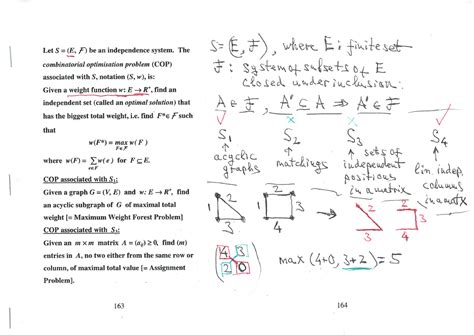 Let S = (E, F) be an independence system. The
combinatorial optimisation problem (COP)
associated with S, notation (S, w), is:
Given a weight function w: E → R⁺, find an
independent set (called an optimal solution) that
has the biggest total weight, i.e. find F* ∈ F such
that
w(F*) = max w(F)
F∈F
where w(F) = ∑ w(e) for F ⊆ E.
e∈F
COP associated with S₁:
Given a graph G = (V, E) and w: E → R⁺, find
an acyclic subgraph of G of maximal total
weight [= Maximum Weight Forest Problem]
COP associated with S₃:
Given an m × m matrix A = (aᵢⱼ) ≥ 0, find (m)
entries in A, no two either from the same row or
column, of maximal total value [= Assignment
Problem].
163
S = (E, F), where E: finite set
F: system of subsets of E
closed under inclusion:
A ∈ F, A' ⊆ A ⇒ A' ∈ F
S₁ S₂ S₃ S₄
acyclic graphs
matchings
sets of independent positions in a matrix
lin. indep. columns in a matrix
1 2 3 4
2 3 4
4 3
2 0
max (4+0, 3+2) = 5
164